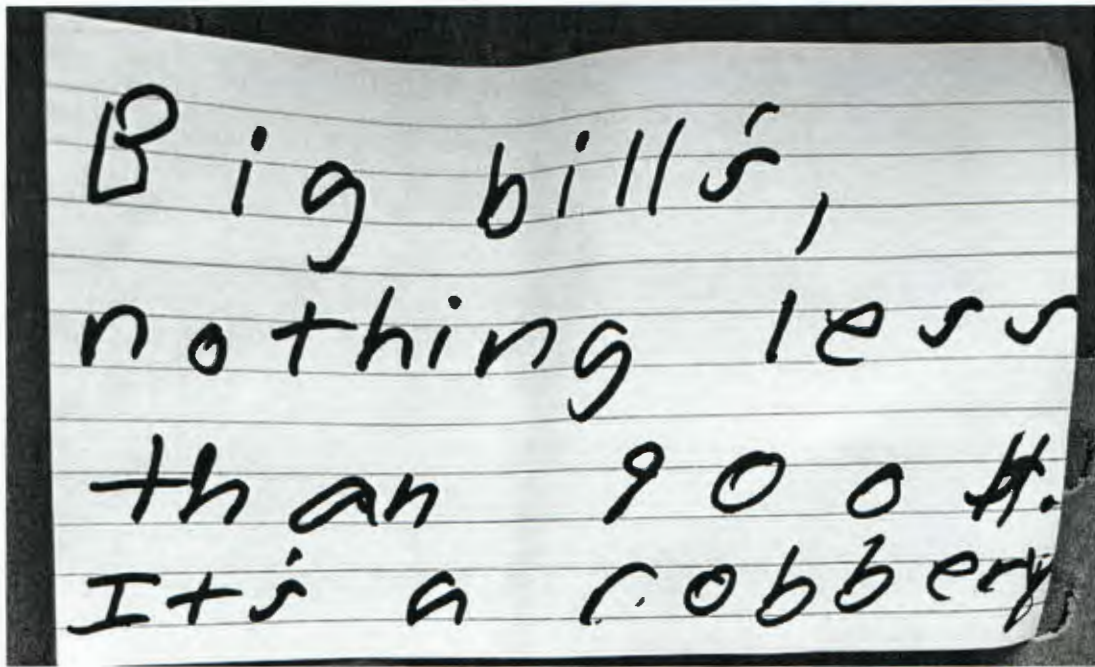 Big bill's,
nothing less
than 900 $.
It's a robbery